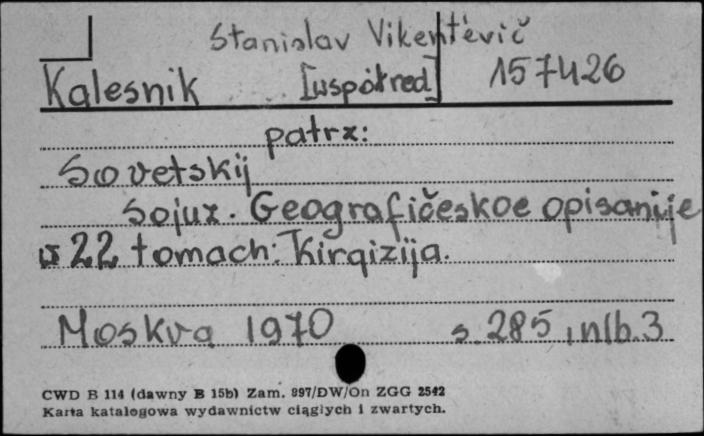 Stanislav Vikent'evič
Kalesnik [współred] 157426
patrz:
Sovetskij
Sojuz. Geografičeskoe opisanije
v 22 tomach: Kirgizija.
Moskva 1970 s. 285, nlb. 3
CWD B 114 (dawny B 15b) Zam. 997/DW/On ZGG 2542
Karta katalogowa wydawnictw ciągłych i zwartych.